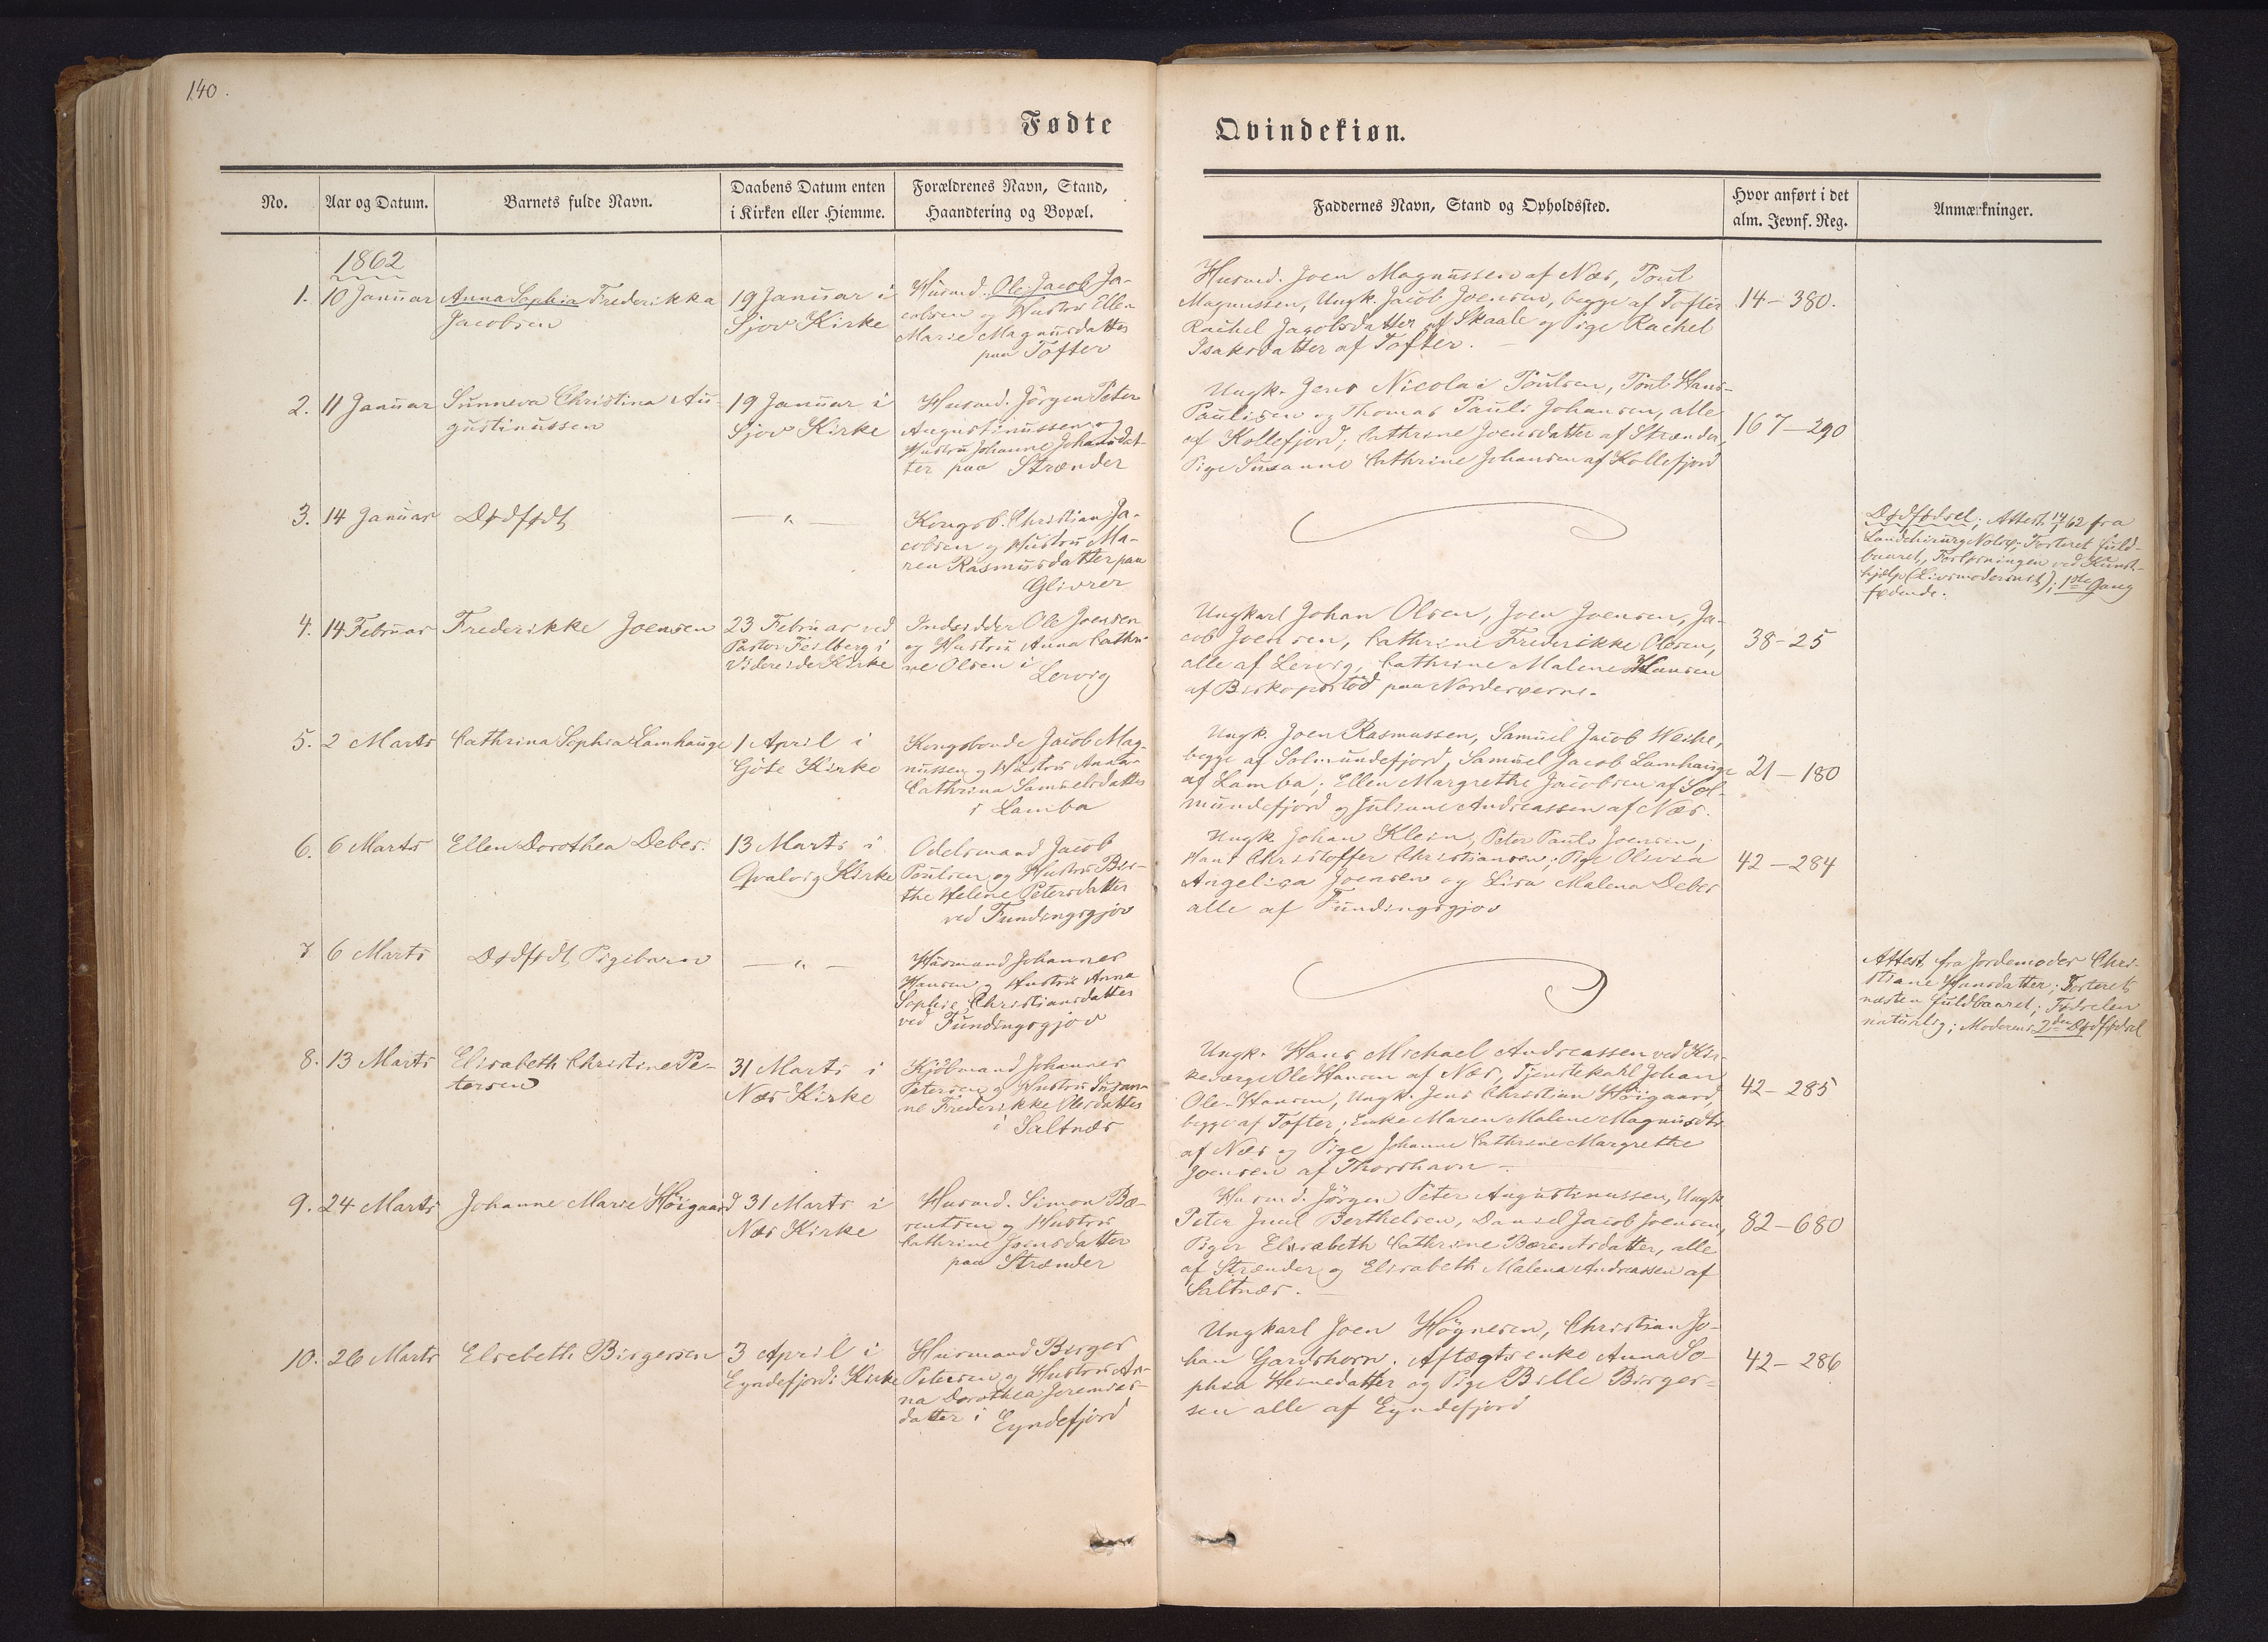 140.
Fødte
Qvindekiøn.
No.
Aar og Datum.
Barnets fulde Navn.
Daabens Datum enten
i Kirken eller Hiemme.
Forældrenes Navn, Stand,
Haandtering og Bopæl.
Faddernes Navn, Stand og Opholdssted.
Hvor anført i det
alm. Jevnf. Reg.
Anmærkninger.
1862
1.
10 Januar
Anna Sophia Frederikka
Jacobsen
19 Januar i
Sjov Kirke
Husmd. Ole Jacob Ja-
cobsen og Hustru Ellen
Marie Magnusdatter
paa Tofter
Husmd. Joen Magnussen af Næs, Poul
Magnussen, Ungk. Jacob Joensen, begge af Tofter
Rachel Jacobsdatter af Skaale og Pige Rachel
Isaksdatter af Tofter. –
14 – 380.
2.
11 Januar
Sunneva Christina Au-
gustinussen
19 Januar i
Sjov Kirke
Husmd. Jörgen Peter
Augustinussen og
Hustru Johanne Johansdat-
ter paa Strænder
Ungk. Jens Nicolai Poulsen, Poul Hans-
Paulisen og Thomas Pauli Johansen, alle
af Kollefjord; Cathrine Joensdatter af Strænder,
Pige Susanne Cathrine Johansen af Kollefjord
167 – 290
3.
14 Januar
Dødfødt
— „ —
Kongsb. Christian Ja-
cobsen og Hustru Ma-
ren Rasmusdatter paa
Glivrer
Dødfødsel; Attest 14/1 62 fra
Landchirurg Nolsø; Fosteret fuld-
baaret, Forløsningen ved Kunst-
hjælp; 1ste Gang
fødende.
4.
14 Februar
Frederikke Joensen
23 Februar ved
Pastor Feilberg i
Videreide Kirke
Indsidder Ole Joensen
og Hustru Anna Cathri-
ne Olsen i
Lervig
Ungkarl Johan Olsen, Joen Joensen, Ja-
cob Joensen, Cathrine Frederikke Olsen,
alle af Lervig, Cathrine Malene Hansen
af Biskopstöd paa Norderøerne.
38 – 25
5.
2 Marts
Cathrina Sophia Lamhauge
1 April i
Göte Kirke
Kongsbonde Jacob Mag-
nussen og Hustru Anna
Cathrina Samuelsdatter
i Lamba
Ungk. Joen Rasmussen, Samuel Jacob Weihe,
begge af Solmundefjord, Samuel Jacob Lamhauge
af Lamba; Ellen Margrethe Jacobsen af Sol-
mundefjord og Juliane Andreassen af Næs.
21 – 180
6.
6 Marts
Ellen Dorothea Debes.
13 Marts i
Qvalvig Kirke
Odelsmand Jacob
Poulsen og Hustru Bir-
the Helene Petersdatter
ved Fundingsgjov
Ungk. Johan Klein, Peter Pauli Joensen,
Hans Christoffer Christiansen; Pige Olivia
Angelica Joensen og Lisa Malena Debes
alle af Fundingsgjov
42 – 284
7
6 Marts
Dødfødt Pigebarn
— „ —
Husmand Johannes
Hansen og Hustru Anna
Sophie Christiansdatter
ved Fundingsgjov
Attest fra Jordemoder Chri-
stiane Hansdatter; Fosteret
næsten fuldbaaret; Fødselen
naturlig; Moderens 2den Dødfødsel
8.
13 Marts
Elisabeth Christine Pe-
tersen
31 Marts i
Næs Kirke
Kjöbmand Johannes
Petersen og Hustru Susan-
ne Frederikke Olesdatter
i Saltnæs
Ungk. Hans Michael Andreassen ved Kir-
keværge Ole Hansen af Næs, Tjenstekarl Johan
Ole Hansen, Ungk. Jens Christian Höigaard,
begge af Tofter; Enke Maren Malene Magnusdtr.
af Næs og Pige Johanne Cathrine Margrethe
Joensen af Thorshavn –
42 – 285
9.
24 Marts
Johanne Marie Höigaard
31 Marts i
Næs Kirke
Husmd. Simon Bæ-
rentsen og Hustru
Cathrine Joensdatter
paa Strænder
Husmd. Jörgen Peter Augustinussen, Ungk.
Peter Juul Berthelsen, Daniel Jacob Joensen,
Piger Elisabeth Cathrine Bærentsdatter, alle
af Strænder og Elisabeth Malena Andreassen af
Saltnæs. –
82 – 680
10.
26 Marts
Elsebeth Birgersen
3 April i
Eyndefjords Kirke
Husmand Birger
Petersen og Hustru An-
na Dorothea Jeremias-
datter i Eyndefjord
Ungkarl Joen Högnesen, Christian Jo-
han Gardshorn. Aftægtsenke Anna So-
phia Heinedatter og Pige Bille Birger-
sen alle af Eyndefjord
42 – 286